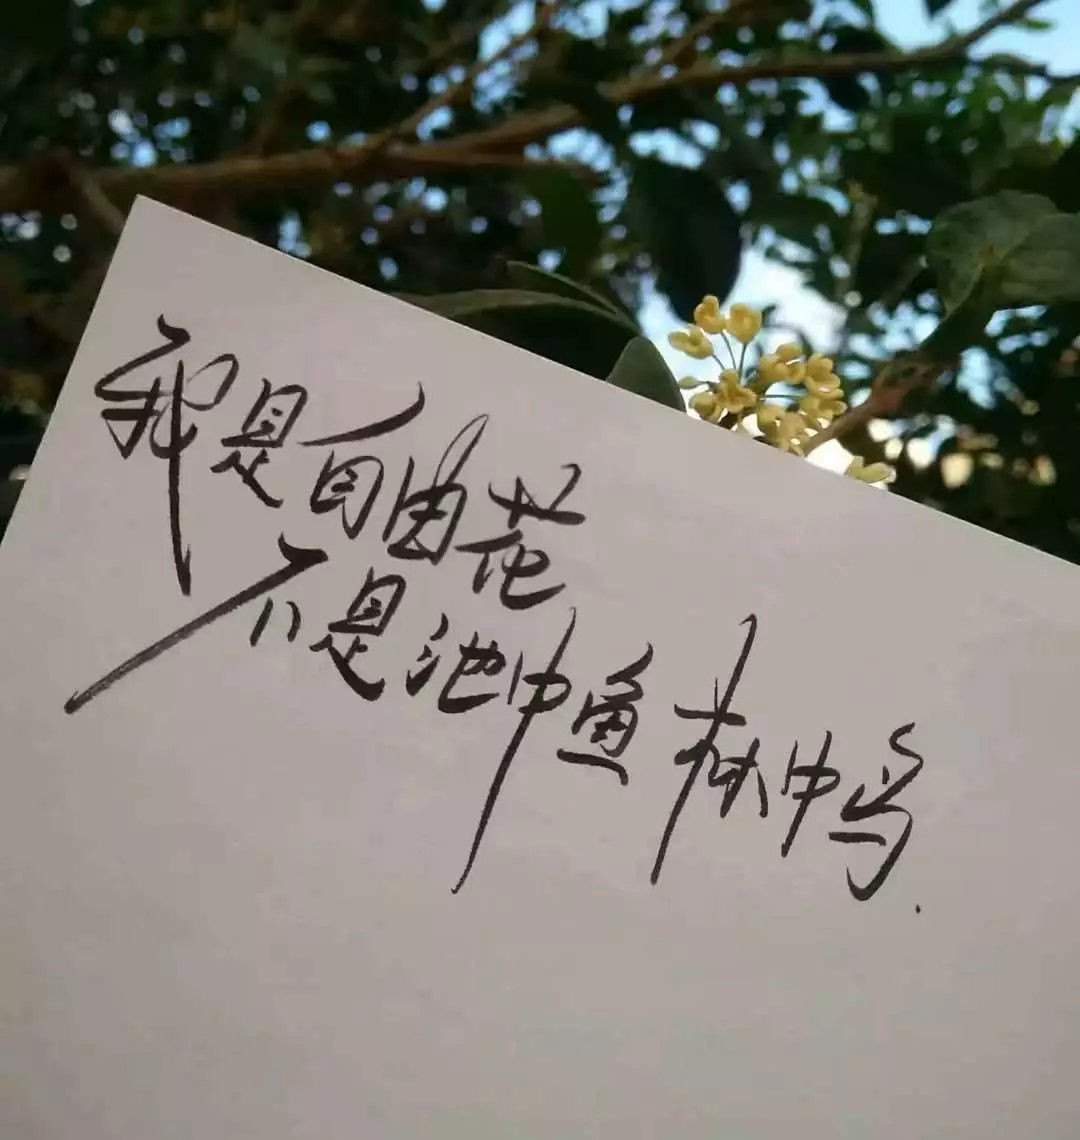 我是自由花
不是池中鱼 林中鸟.